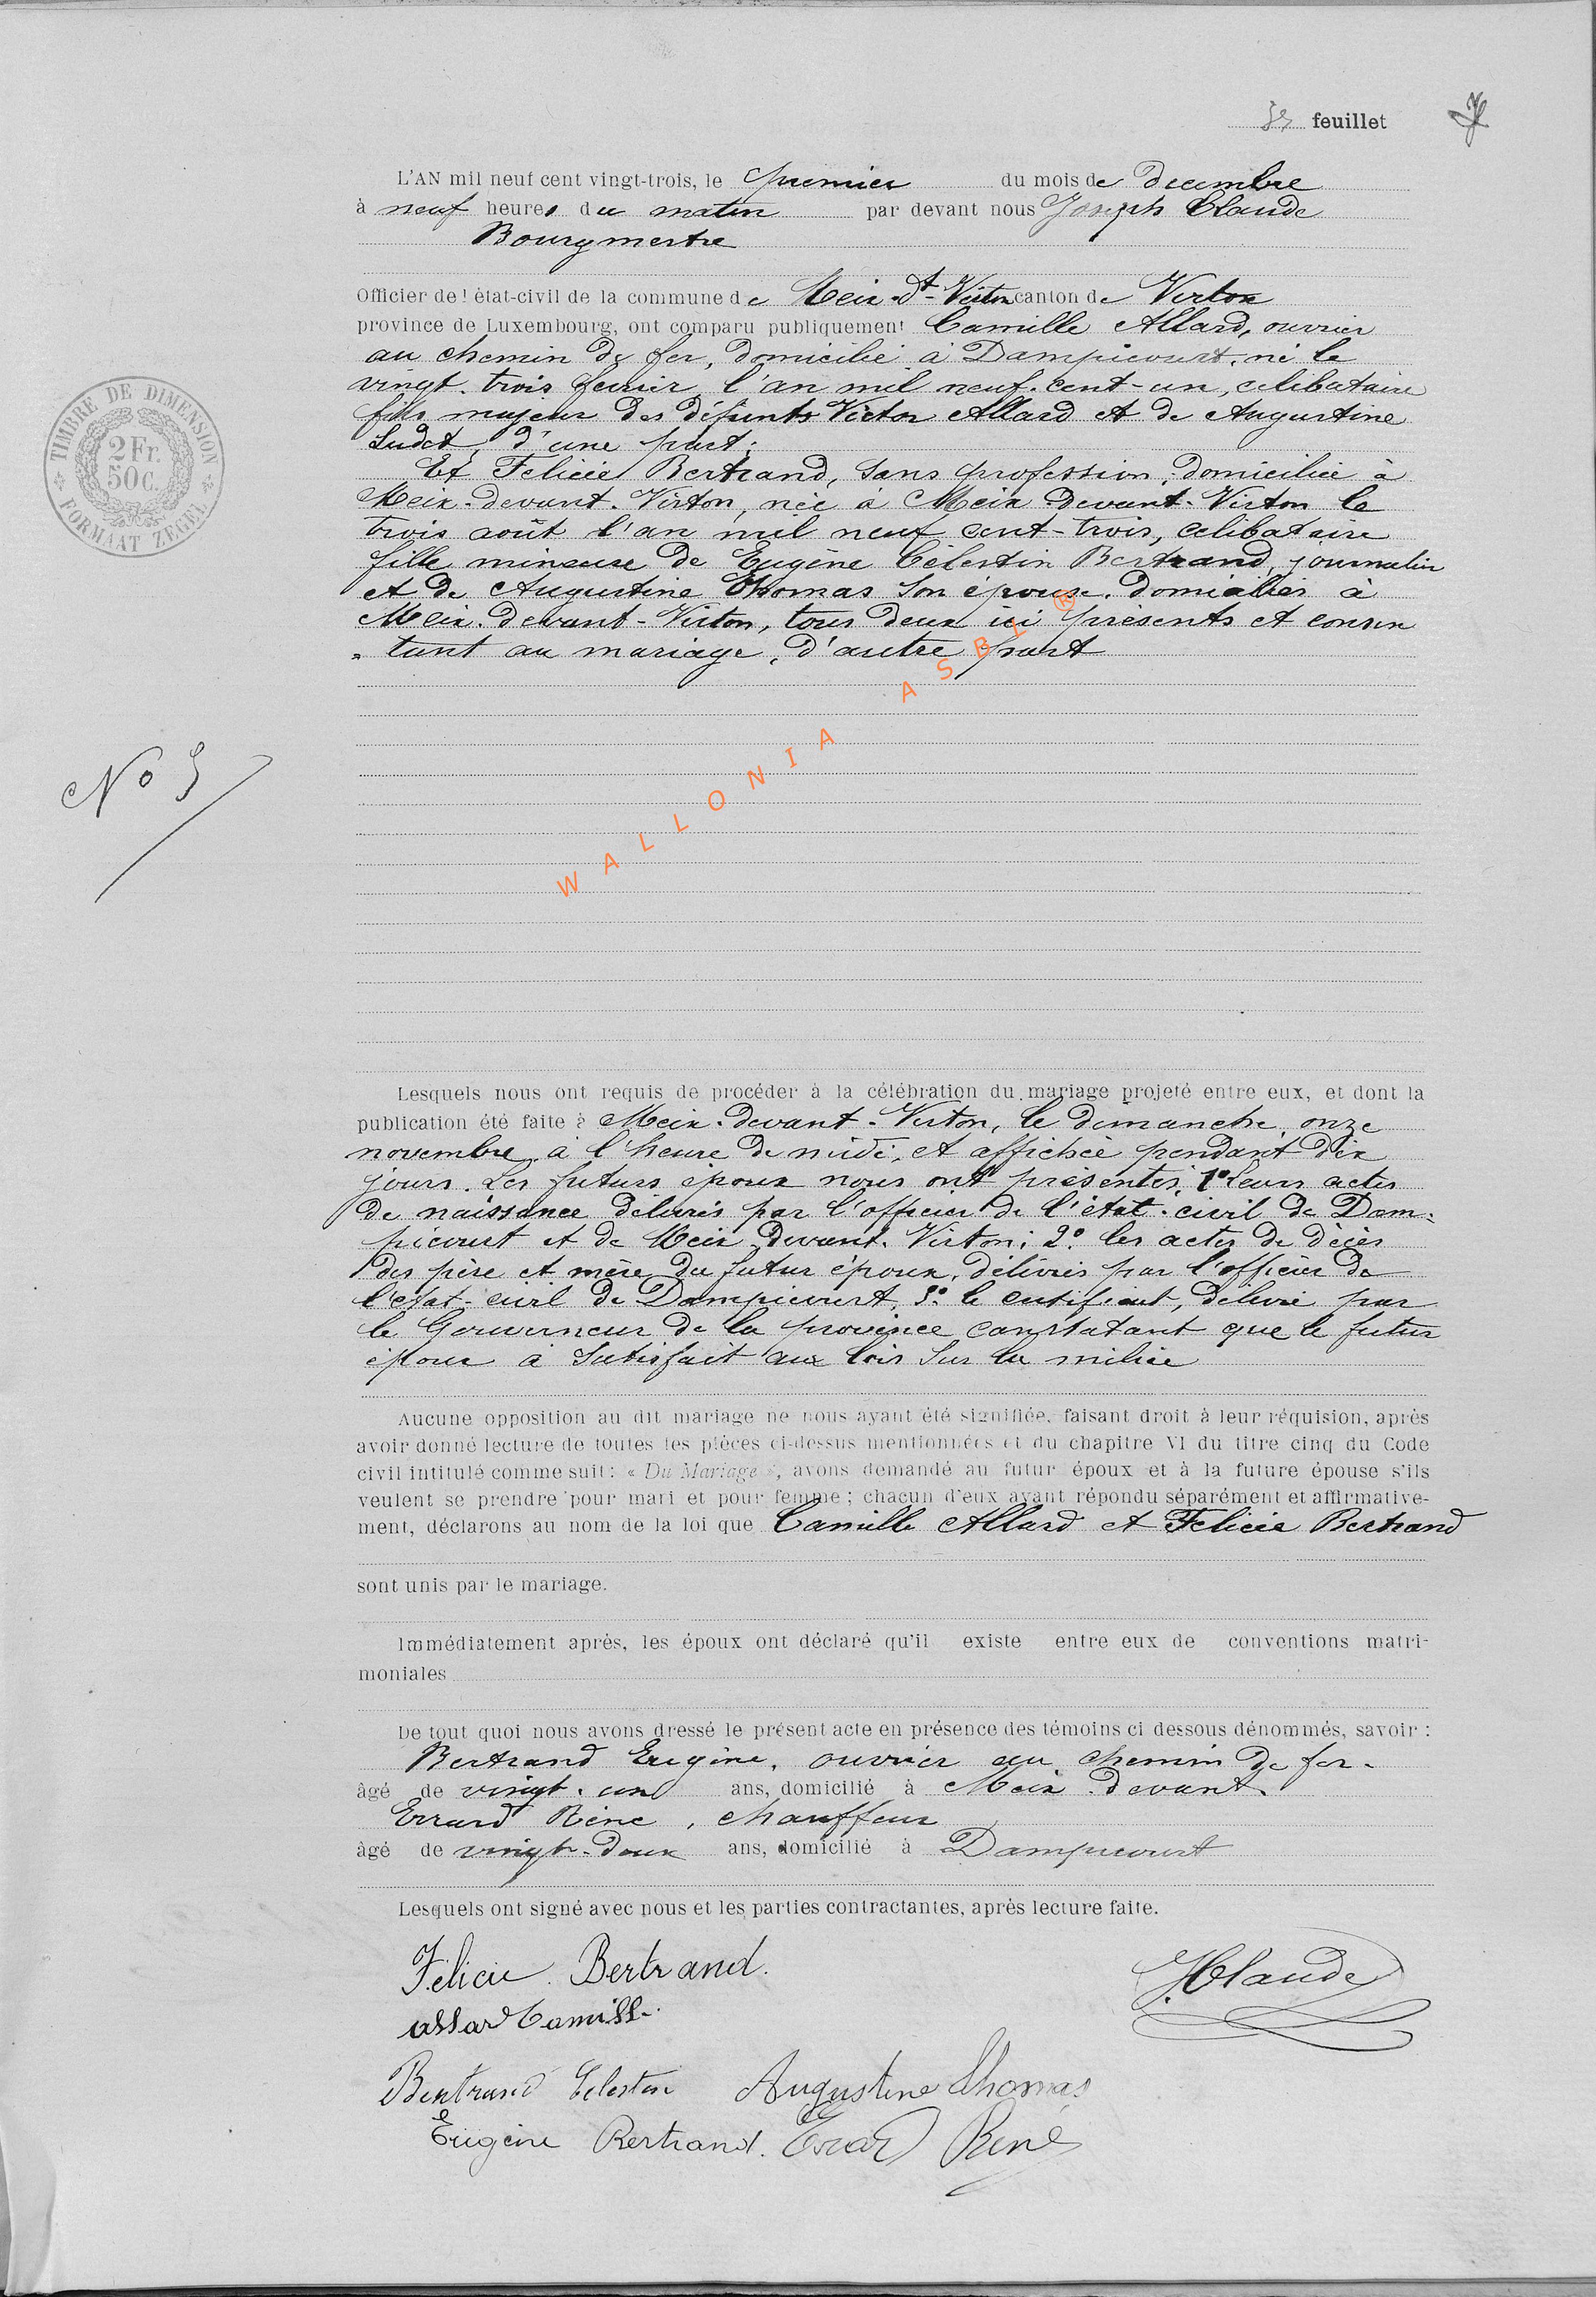 feuillet
L'AN mil neuf cent vingt-trois, le premier du mois de decembre
à neuf heures du matin par devant nous Joseph Claude
Bourgmestre
Officier de l'état-civil de la commune de Meix-dt-Virton canton de Virton
province de Luxembourg, ont comparu publiquement Camille Allard, ouvrier
au chemin de fer, domicilié à Dampicourt, né le
vingt-trois fevrier l'an mil neuf-cent-un, celibataire
fils majeur des défunts Victor Allard et de Augustine
d'une part;
Et Felicie Bertrand, sans profession, domiciliée à
Meix-devant-Virton, née à Meix-devant-Virton le
trois août l'an mil neuf cent-trois, celibataire
fille mineure de Eugène Célestin Bertrand, journalier
et de Augustine Thomas son épouse, domiciliés à
Meix-devant-Virton, tous deux ici présents et consen
-tant au mariage, d'autre part
TIMBRE DE DIMENSION
2 Fr. 50 C.
FORMAAT ZEGEL
WALLONIA ASBL ®
No 5
Lesquels nous ont requis de procéder à la célébration du mariage projeté entre eux, et dont la
publication été faite à Meix-devant-Virton, le dimanche onze
novembre à l'heure de midi, et affichée pendant dix
jours. Les futurs époux nous ont présentés, 1° leurs actes
de naissance délivrés par l'officier de l'état-civil de Dam-
picourt et de Meix-devant-Virton; 2° les actes de décès
des père et mère du futur époux, délivrés par l'officier de
l'état-civil de Dampicourt, 3° le certificat, délivré par
le Gouverneur de la province constatant que le futur
époux a satisfait aux lois sur la milice
Aucune opposition au dit mariage ne nous ayant été signifiée, faisant droit à leur réquision, après
avoir donné lecture de toutes les pièces ci-dessus mentionnées et du chapitre VI du titre cinq du Code
civil intitulé comme suit: « Du Mariage », avons demandé au futur époux et à la future épouse s'ils
veulent se prendre pour mari et pour femme; chacun d'eux ayant répondu séparément et affirmative-
ment, déclarons au nom de la loi que Camille Allard et Felicie Bertrand
sont unis par le mariage.
Immédiatement après, les époux ont déclaré qu'il existe entre eux de conventions matri-
moniales
De tout quoi nous avons dressé le présent acte en présence des témoins ci dessous dénommés, savoir:
Bertrand Eugène, ouvrier au chemin de fer.
âgé de vingt-un ans, domicilié à Meix-devant-
Errard Réné, chauffeur
âgé de vingt-deux ans, domicilié à Dampicourt
Lesquels ont signé avec nous et les parties contractantes, après lecture faite.
Félicie Bertrand. J. Claude
allard Camille.
Bertrand Célestin Augustine Thomas
Eugène Bertrand. Errard René